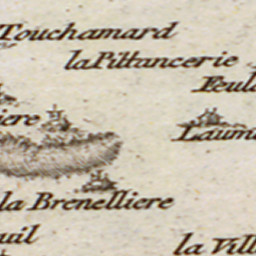 Touchamard
la Pittancerie
Feul
iere
Laum
la Brenelliere
uil
la Vill